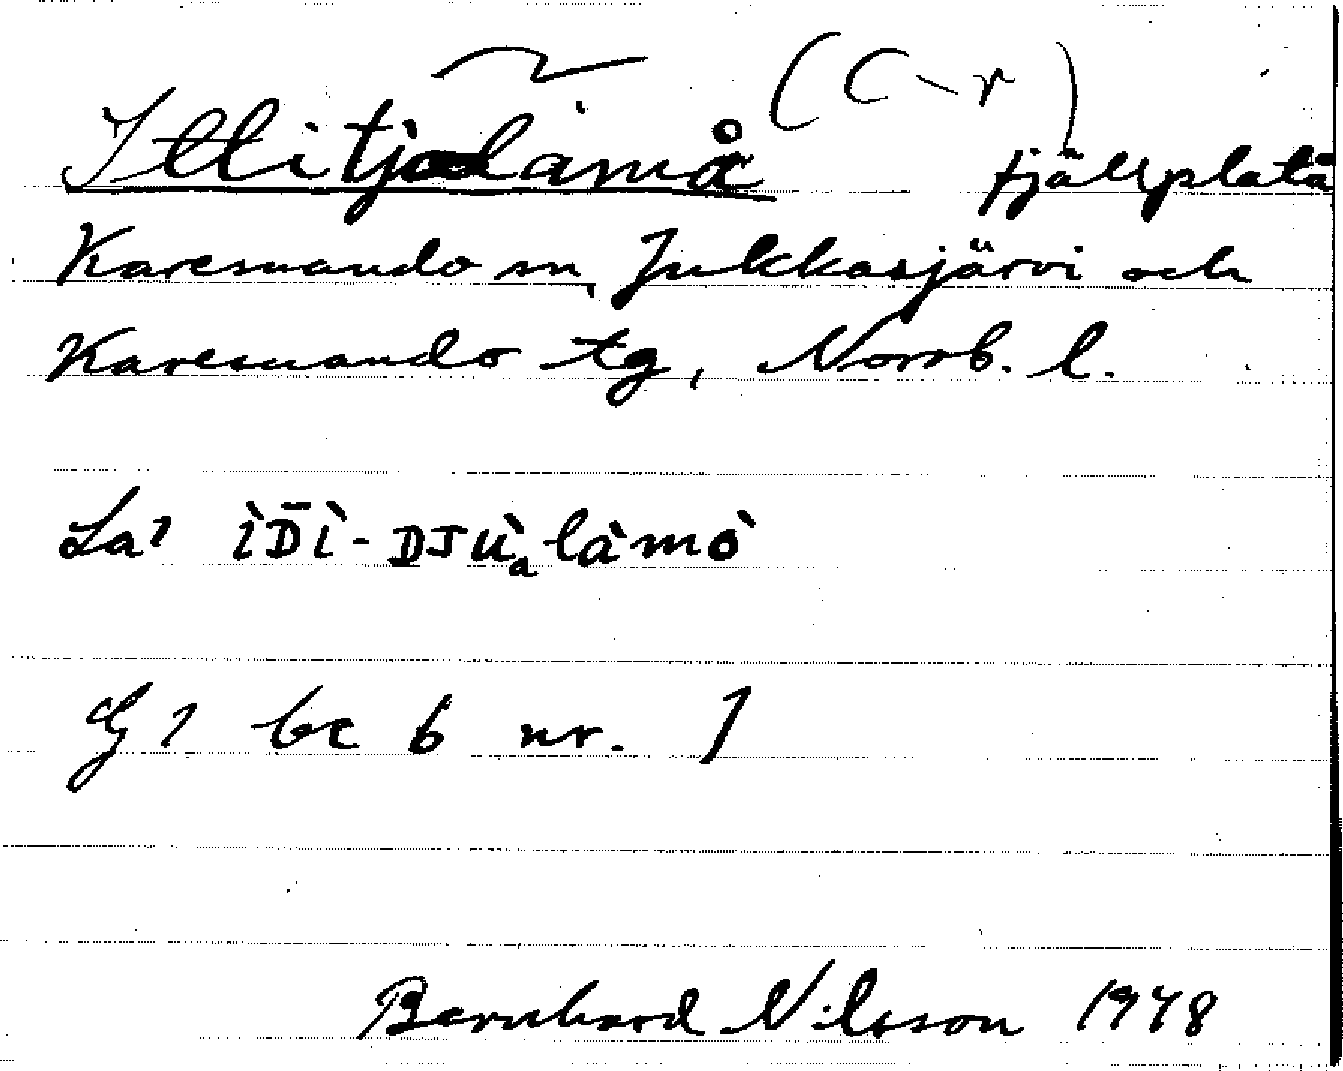 (C-r)
Ittitjålämå fjällplatå
Karesuando sn, Jukkasjärvi och
Karesuando tg, Norrb. l.
La: ìD̄ì-DJU̇ₐlàmò
G: bc b nr. 1
Bernhard Nilsson 1948